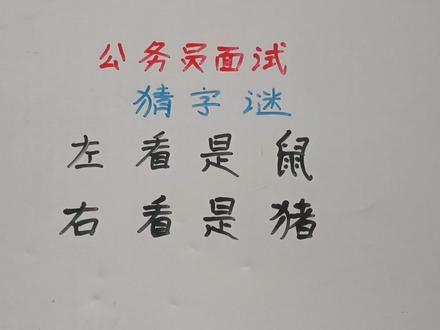 公务员面试
猜字谜
左看是鼠
右看是猪